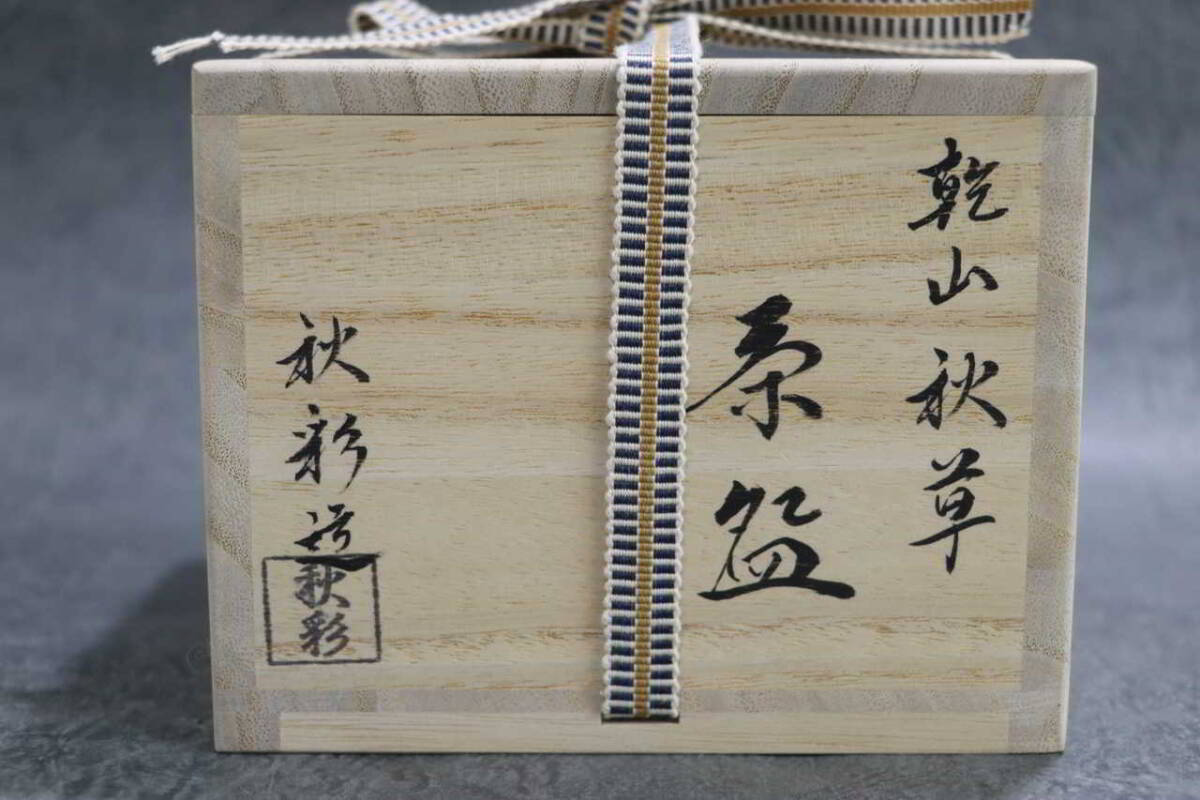 乾山秋草
茶盌
秋彩造
秋彩